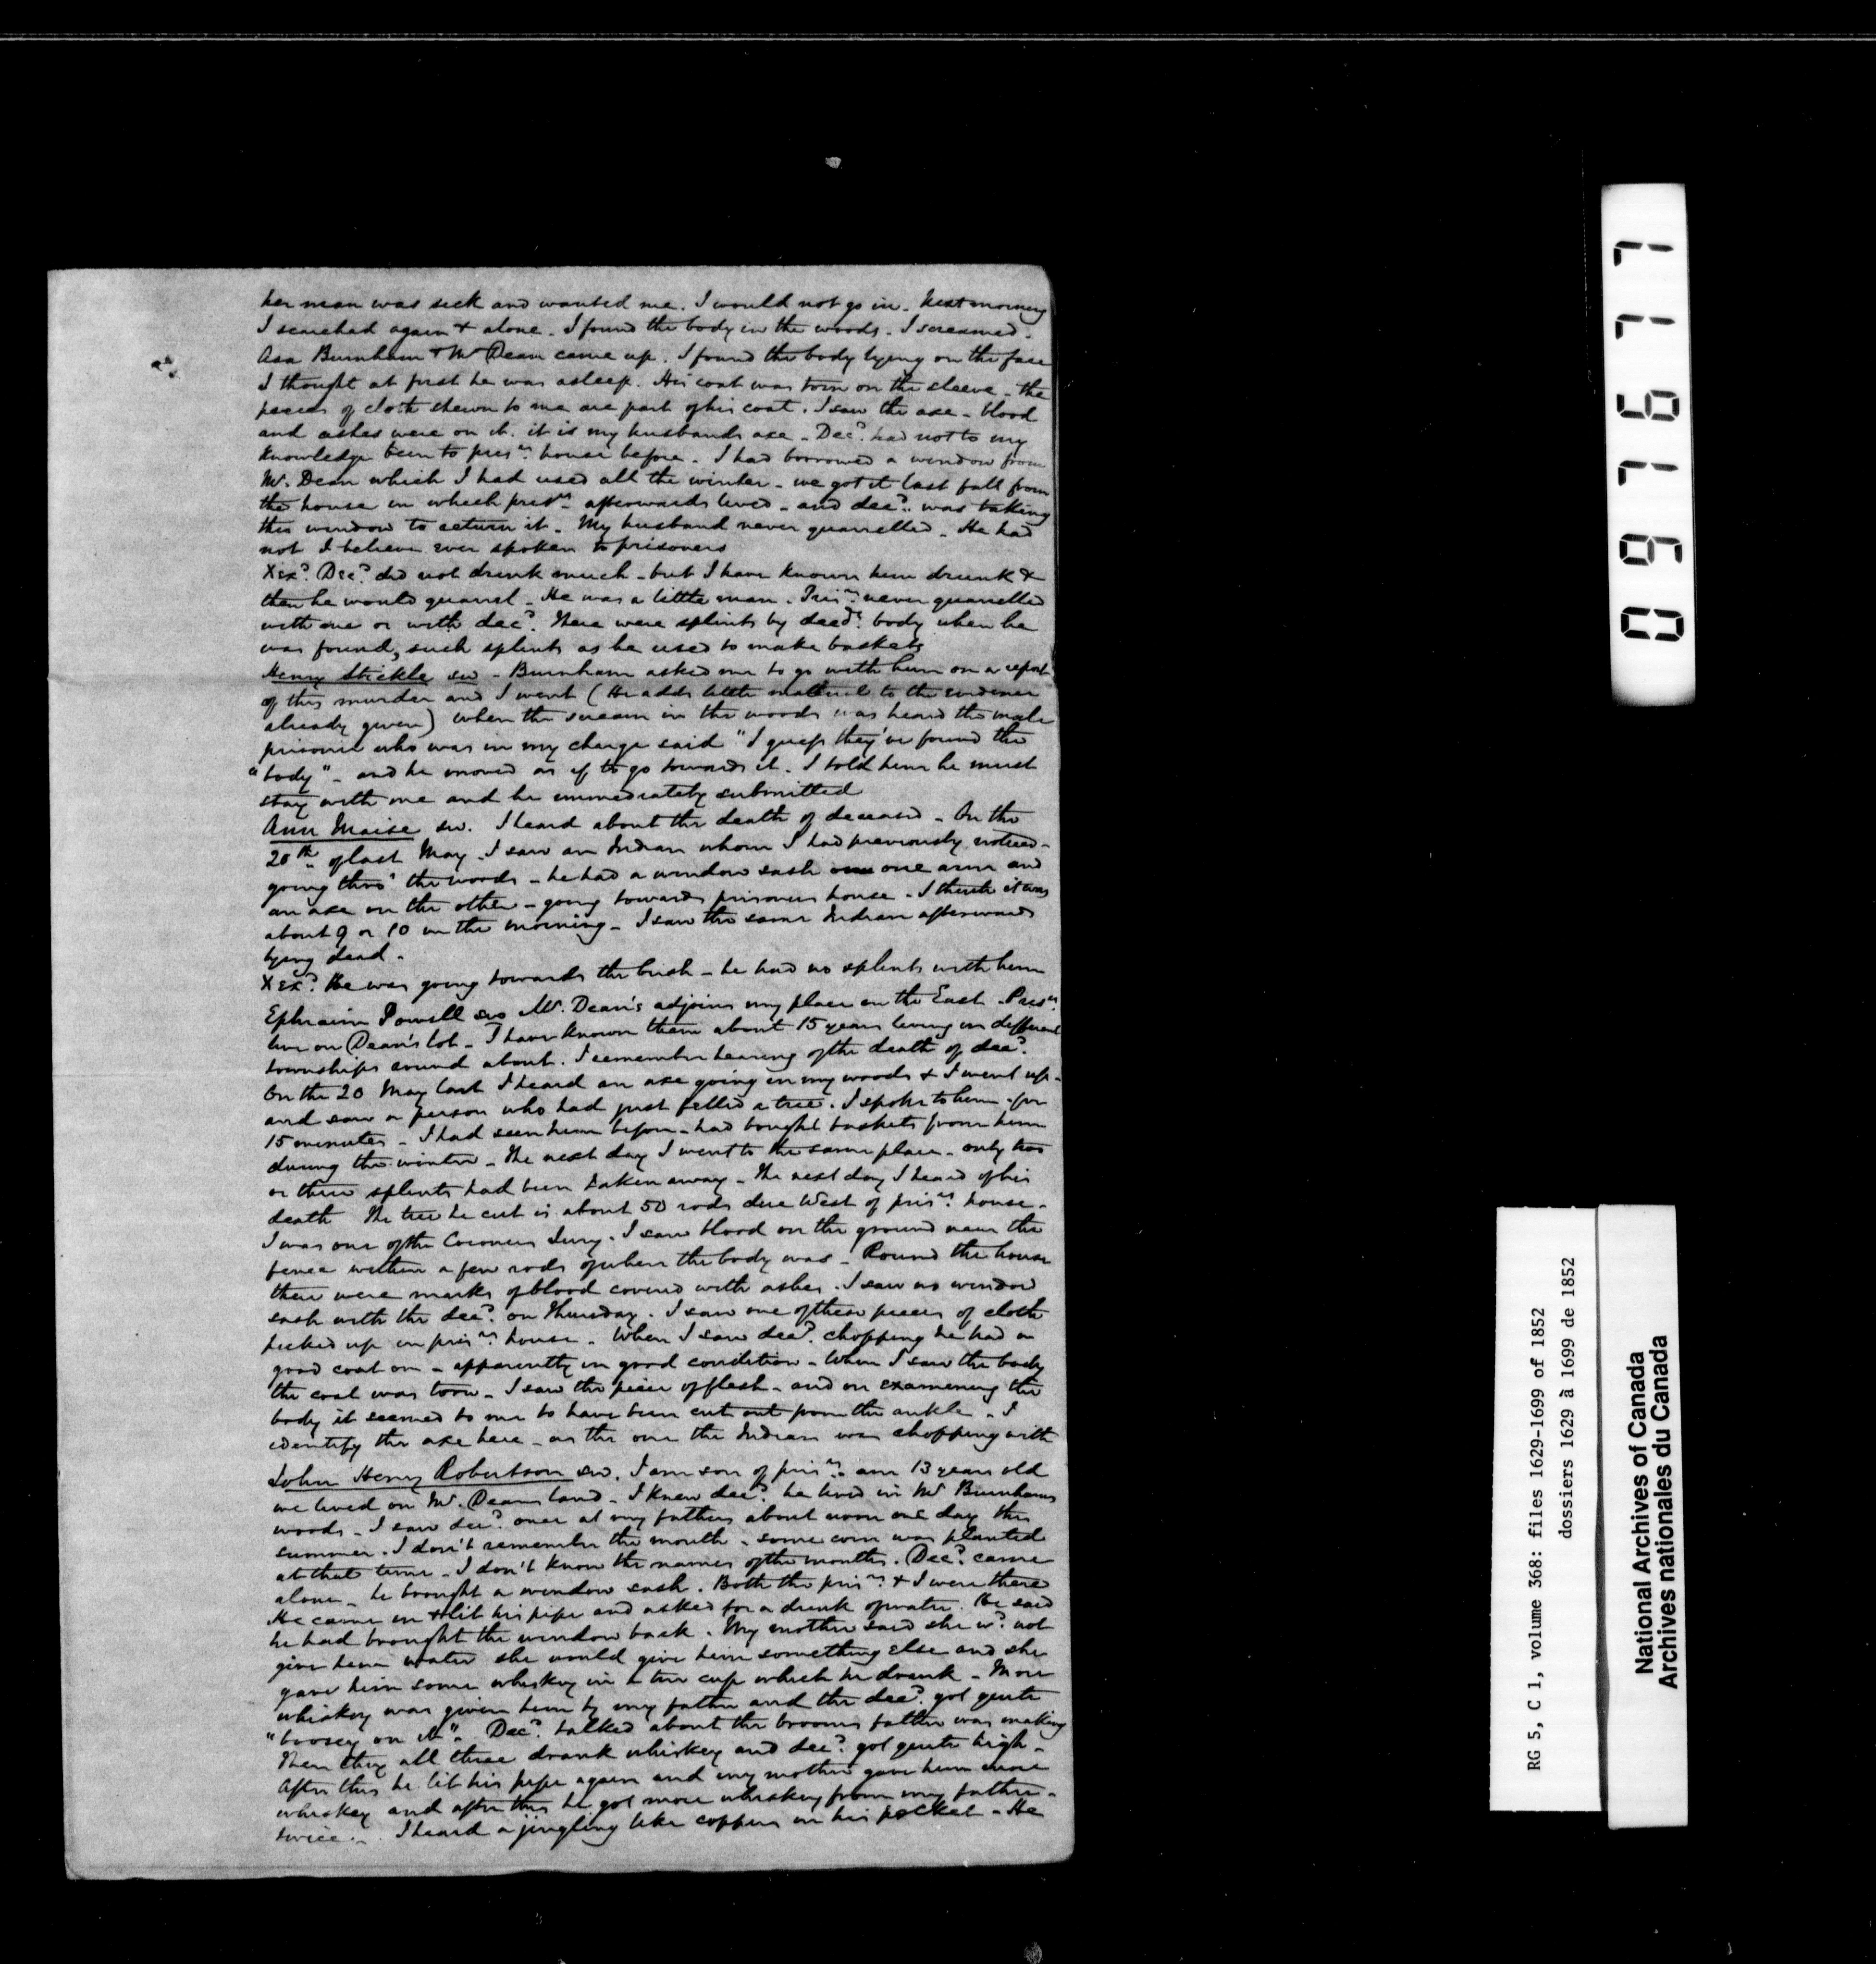 her man was sick and wanted me. I would not go in. Next morning
I searched again & alone. I found the body in the woods. I screamed.
Asa Burnham & Mr Dean came up. I found the body lying on the face
I thought at first he was asleep. His coat was torn on the sleeve - the
pieces of cloth shewn to me are part of his coat. I saw the axe - blood
and ashes were on it. it is my husbands axe - Decd. had not to my
knowledge been to prisrs. house before. I had borrowed a window from
Mr. Dean which I had used all the winter - we got it last fall from
the house in which prisrs. afterwards lived - and decd. was taking
this window to return it. My husband never quarrelled. He had
not I believe ever spoken to prisoners
Xexd. Decd. did not drink much - but I have known him drunk &
then he would quarrel - He was a little man. Prisrs. never quarrelled
with me or with decd. There were splints by decds. body when he
was found, such splints as he used to make baskets
Henry Stickle sw - Burnham asked me to go with him on a report
of this murder and I went (He adds little material to the evidence
already given) when the scream in the woods was heard the male
prisoner who was in my charge said "I guess they've found the
"body" - and he moved as if to go towards it. I told him he must
stay with me and he immediately submitted
Ann Maise sw. I heard about the death of deceased - On the
20th of last May. I saw an Indian whom I had previously noticed -
going thro' the woods - he had a window sash one arm and
an axe on the other - going towards prisoners house - I think it was
about 9 or 10 in the morning - I saw the same Indian afterwards
lying dead.
Xexd. He was going towards the bush - he had no splints with him
Ephraim Powell sw Mr. Dean's adjoins my place on the East. Prisrs.
live on Dean's lot - I have known them about 15 years living in different
townships round about. I remember hearing of the death of decd.
On the 20 May last I heard an axe going in my woods & I went up -
and saw a person who had just felled a tree. I spoke to him for
15 minutes - I had seen him before - had bought baskets from him
during the winter - The next day I went to the same place - only two
or three splints had been taken away - The next day I heard of his
death The tree he cut is about 50 rods due West of prisrs. house -
I was one of the Coroners Jury. I saw blood on the ground near the
fence within a few rods of where the body was - Round the house
there were marks of blood covered with ashes. I saw no window
sash with the decd. on Thursday. I saw one of these pieces of cloth
picked up in prisrs. house - When I saw decd. chopping he had a
good coat on - apparently in good condition - When I saw the body
the coat was torn - I saw the piece of flesh - and on examining the
body it seemed to me to have been cut out from the ankle - I
identify the axe here - as the one the Indian was chopping with
John Henry Robertson sw. I am son of prisrs. am 13 years old
we lived on Mr. Deans land - I knew decd. he lived in Mr Burnhams
woods - I saw decd. once at my fathers about noon one day this
summer. I don't remember the month - some corn was planted
at that time - I don't know the names of the months. Decd. came
alone - he brought a window sash. Both the prisrs. & I were there
He came in & lit his pipe and asked for a drink of water. He said
he had brought the window back. My mother said she wd. not
give him water she would give him something else and she
gave him some whiskey in a tin cup which he drank - More
whiskey was given him by my father and the decd. got quite
"boosey on it". Decd. talked about the brooms father was making
Then they all three drank whiskey and decd. got quite high -
After this he lit his pipe again and my mother gave him more
whiskey and after this he got more whiskey from my father -
twice. I heard a jingling like coppers in his pocket - He
097677
RG 5, C 1, volume 368: files 1629-1699 of 1852
dossiers 1629 à 1699 de 1852
National Archives of Canada
Archives nationales du Canada